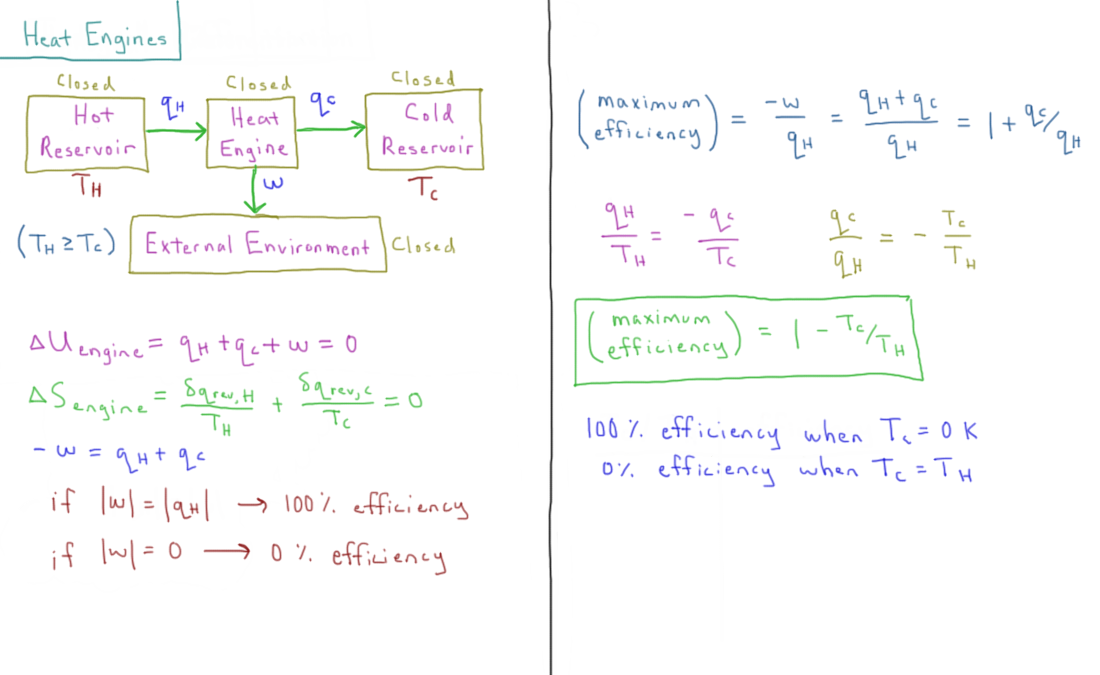 Heat Engines
Closed Closed Closed
Hot Reservoir qH Heat Engine qC Cold Reservoir
TH w TC
(TH ≥ TC) External Environment Closed
ΔUengine = qH + qC + w = 0
ΔSengine = δqrev,H / TH + δqrev,C / TC = 0
-w = qH + qC
if |w| = |qH| → 100% efficiency
if |w| = 0 → 0% efficiency
(maximum efficiency) = -w / qH = (qH + qC) / qH = 1 + qC/qH
qH / TH = -qC / TC qC / qH = - TC / TH
(maximum efficiency) = 1 - TC/TH
100% efficiency when TC = 0 K
0% efficiency when TC = TH